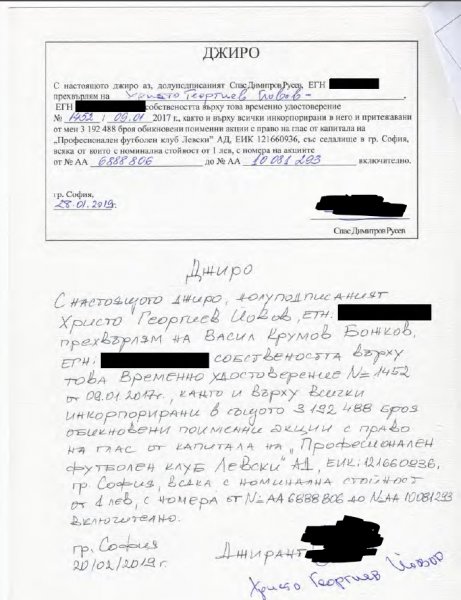 ДЖИРО
С настоящото джиро аз, долуподписаният Спас Димитров Русев, ЕГН
прехвърлям на Христо Георгиев Йовов
ЕГН собствеността върху това временно удостоверение
№ 1452 / 09.01 2017 г., както и върху всички инкорпорирани в него и притежавани
от мен 3 192 488 броя обикновени поименни акции с право на глас от капитала на
„Професионален футболен клуб Левски" АД, ЕИК 121660936, със седалище в гр. София,
всяка от които с номинална стойност от 1 лев, с номера на акциите
от № АА 6888806 до № АА 10081293 включително.
гр. София,
28.01.2019г.
Спас Димитров Русев
Джиро
С настоящото джиро, долуподписаният
Христо Георгиев Йовов, ЕГН:
прехвърлям на Васил Крумов Божков,
ЕГН: собствеността върху
това Временно удостоверение N=1452
от 09.01.2017г., както и върху всички
инкорпорирани в същото 3 192 488 броя
обикновени поименни акции с право
на глас от капитала на „Професионален
футболен клуб Левски" АД, ЕИК:121660936,
гр. София, всяка с номинална стойност
от 1 лев, с номера от N=АА 6888806 до N=АА 10081293
включително.
гр. София
20/02/2019г.
Джирант
Христо Георгиев Йовов